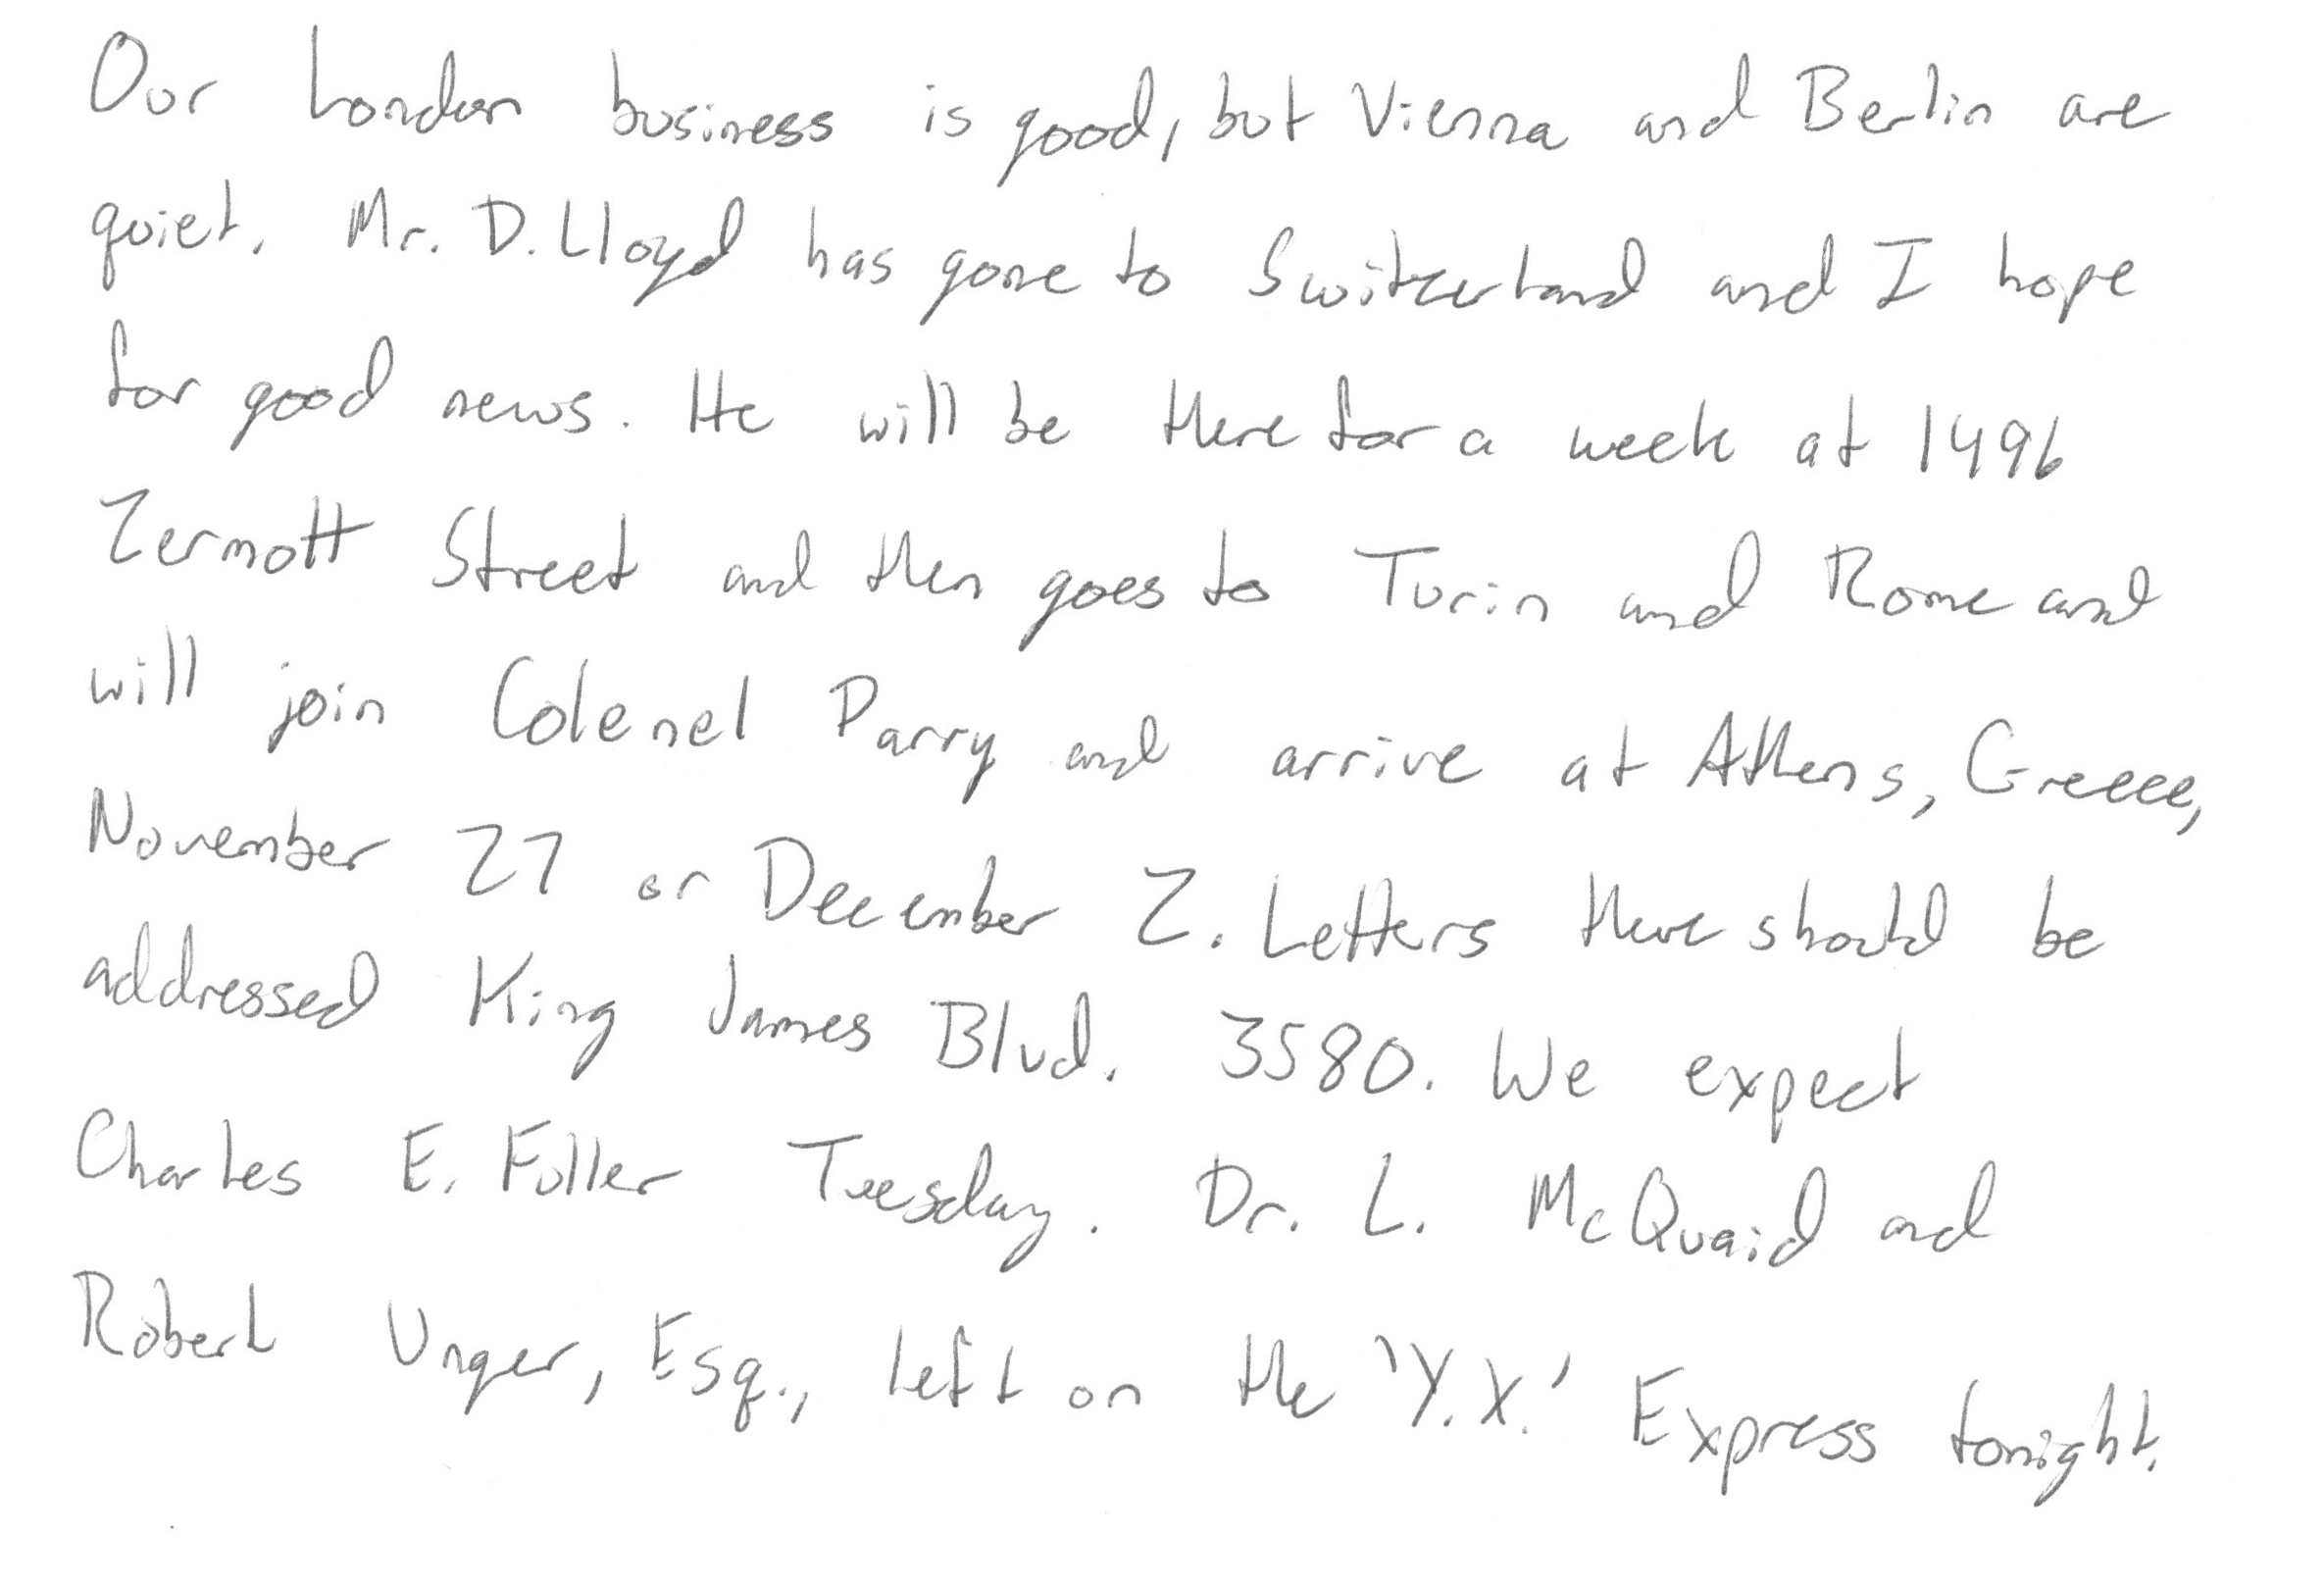 Our London business is good, but Vienna and Berlin are
quiet. Mr. D. Lloyd has gone to Switzerland and I hope
for good news. He will be there for a week at 1496
Zermott Street and then goes to Turin and Rome and
will join Colenel Parry and arrive at Athens, Greece,
November 27 or December 2. Letters there should be
addressed King James Blvd. 3580. We expect
Charles E. Fuller Tuesday. Dr. L. McQuaid and
Robert Unger, Esq., left on the 'Y.X.' Express tonight.